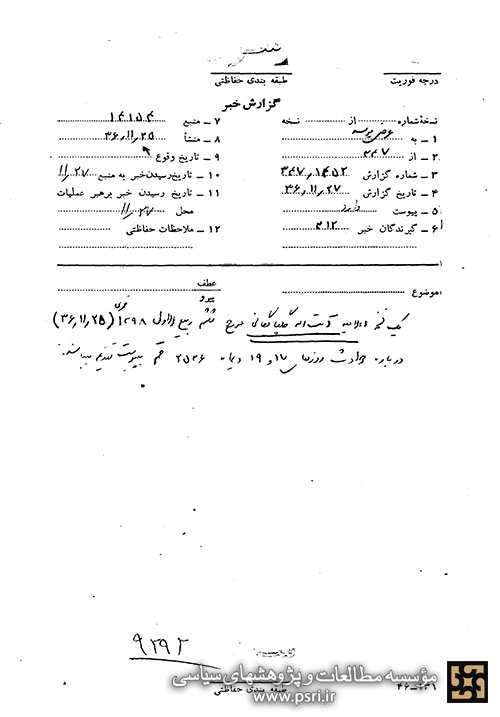 سری
درجه فوریت
طبقه بندی حفاظتی
گزارش خبر
نسخه شماره از نسخه
۱ – به عرض میرسد
۲ – از ۳۴۷
۳ – شماره گزارش
۴ – تاریخ گزارش ۳۶٫۱۱٫۲۷
۵ – پیوست دارد
۶ – گیرندگان خبر ۳۱۲
۷ – منبع
۸ – منشأ ۳۶٫۱۱٫۲۵
۹ – تاریخ وقوع
۱۰ – تاریخ رسیدن خبر به منبع ۱۱٫۲۷
۱۱ – تاریخ رسیدن خبر برهبر عملیات
محل
۱۲ – ملاحظات حفاظتی
موضوع
عطف
پیرو
یک نسخه اعلامیه آیت اله گلپایگانی مورخ ششم ربیع الاول ۱۳۹۸ قمری (۳۶٫۱۱٫۲۵)
درباره حوادث روزهای ۱۷ و ۱۹ دیماه ۲۵۳۶ قم بپیوست تقدیم میباشد.
۹۲۹۲
طبقه بندی حفاظتی
مؤسسه مطالعات و پژوهشهای سیاسی
www.psri.ir